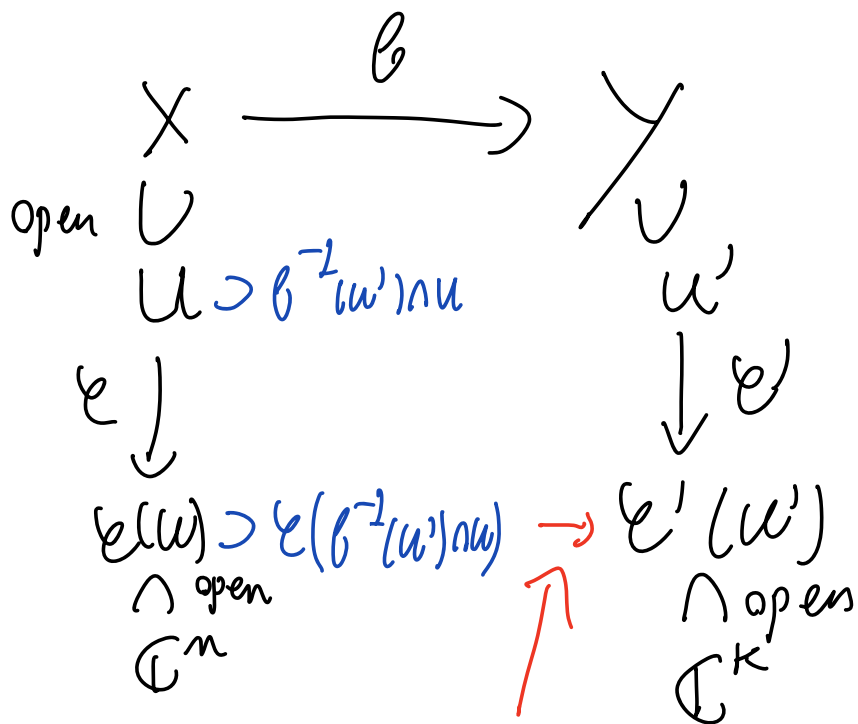 f
X → Y
open ∪ ∪
U ⊃ f⁻¹(U') ∩ U U'
φ ↓ ↓ φ'
φ(U) ⊃ φ(f⁻¹(U') ∩ U) → φ'(U')
∩ open ∩ open
ℂⁿ ℂᵏ